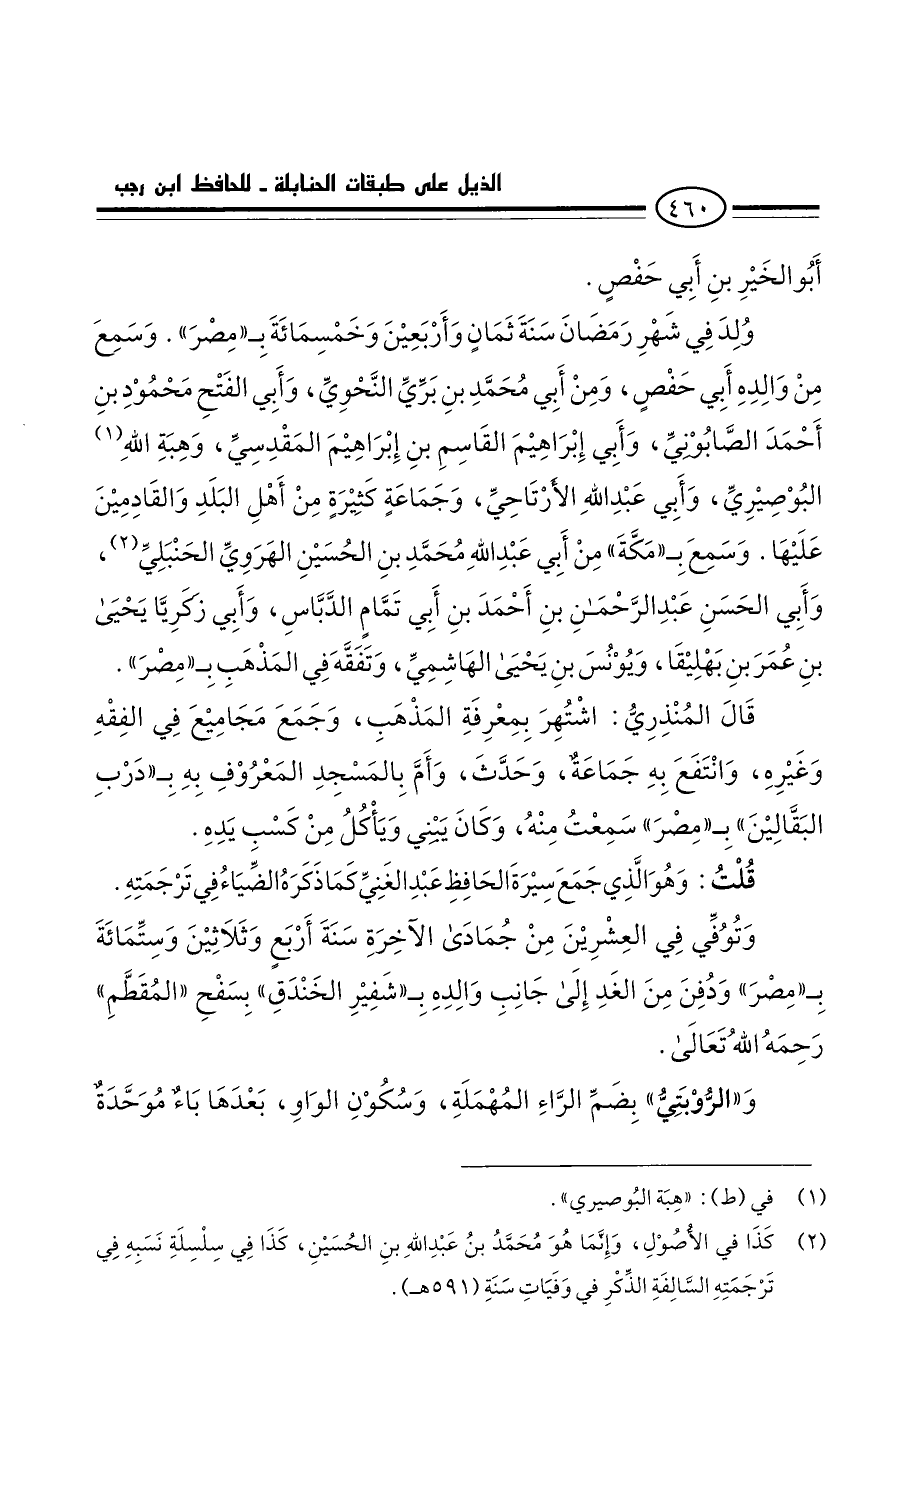 الذيل على طبقات الحنابلة ـ للحافظ ابن رجب
٤٦٠
أَبُو الخَيْرِ بنِ أَبِي حَفْصٍ .
وُلِدَ فِي شَهْرِ رَمَضَانَ سَنَةَ ثَمَانٍ وَأَرْبَعِيْنَ وَخَمْسِمَائَةَ بِـ«مِصْرَ» . وَسَمِعَ
مِنْ وَالِدِهِ أَبِي حَفْصٍ، وَمِنْ أَبِي مُحَمَّدِ بنِ بَرِّيِّ النَّحْوِيِّ، وَأَبِي الفَتْحِ مَحْمُوْدِ بنِ
أَحْمَدَ الصَّابُوْنِيِّ، وَأَبِي إِبْرَاهِيْمَ القَاسِمِ بنِ إِبْرَاهِيْمَ المَقْدِسِيِّ، وَهِبَةِ اللهِ(١)
البُوْصِيْرِيِّ، وَأَبِي عَبْدِاللهِ الأَرْتَاحِيِّ، وَجَمَاعَةٍ كَثِيْرَةٍ مِنْ أَهْلِ البَلَدِ وَالقَادِمِيْنَ
عَلَيْهَا . وَسَمِعَ بِـ«مَكَّةَ» مِنْ أَبِي عَبْدِاللهِ مُحَمَّدِ بنِ الحُسَيْنِ الهَرَوِيِّ الحَنْبَلِيِّ(٢)،
وَأَبِي الحَسَنِ عَبْدِالرَّحْمَـٰنِ بنِ أَحْمَدَ بنِ أَبِي تَمَّامٍ الدَّبَّاسِ، وَأَبِي زَكَرِيَّا يَحْيَىٰ
بنِ عُمَرَ بنِ بَهْلِيْقَا، وَيُوْنُسَ بنِ يَحْيَىٰ الهَاشِمِيِّ، وَتَفَقَّهَ فِي المَذْهَبِ بِـ«مِصْرَ» .
قَالَ المُنْذِرِيُّ : اشْتُهِرَ بِمَعْرِفَةِ المَذْهَبِ، وَجَمَعَ مَجَامِيْعَ فِي الفِقْهِ
وَغَيْرِهِ، وَانْتَفَعَ بِهِ جَمَاعَةٌ، وَحَدَّثَ، وَأَمَّ بِالمَسْجِدِ المَعْرُوْفِ بِهِ بِـ«دَرْبِ
البَقَّالِيْنَ» بِـ«مِصْرَ» سَمِعْتُ مِنْهُ، وَكَانَ يَبْنِي وَيَأْكُلُ مِنْ كَسْبِ يَدِهِ .
قُلْتُ : وَهُوَ الَّذِي جَمَعَ سِيْرَةَ الحَافِظِ عَبْدِالغَنِيِّ كَمَا ذَكَرَهُ الضِّيَاءُ فِي تَرْجَمَتِهِ .
وَتُوُفِّي فِي العِشْرِيْنَ مِنْ جُمَادَىٰ الآخِرَةِ سَنَةَ أَرْبَعٍ وَثَلَاثِيْنَ وَسِتِّمَائَةَ
بِـ«مِصْرَ» وَدُفِنَ مِنَ الغَدِ إِلَىٰ جَانِبِ وَالِدِهِ بِـ«شَفِيْرِ الخَنْدَقِ» بِسَفْحِ «المُقَطَّمِ»
رَحِمَهُ اللهُ تَعَالَىٰ .
وَ«الرُّوْبَتِيُّ» بِضَمِّ الرَّاءِ المُهْمَلَةِ، وَسُكُوْنِ الوَاوِ، بَعْدَهَا بَاءٌ مُوَحَّدَةٌ
(١) في (ط) : «هِبَة البُوصيري» .
(٢) كَذَا في الأُصُوْلِ، وَإِنَّمَا هُوَ مُحَمَّدُ بنُ عَبْدِاللهِ بنِ الحُسَيْنِ، كَذَا فِي سِلْسِلَةِ نَسَبِهِ فِي
تَرْجَمَتِهِ السَّالِفَةِ الذِّكْرِ في وَفَيَاتِ سَنَةِ (٥٩١هـ) .